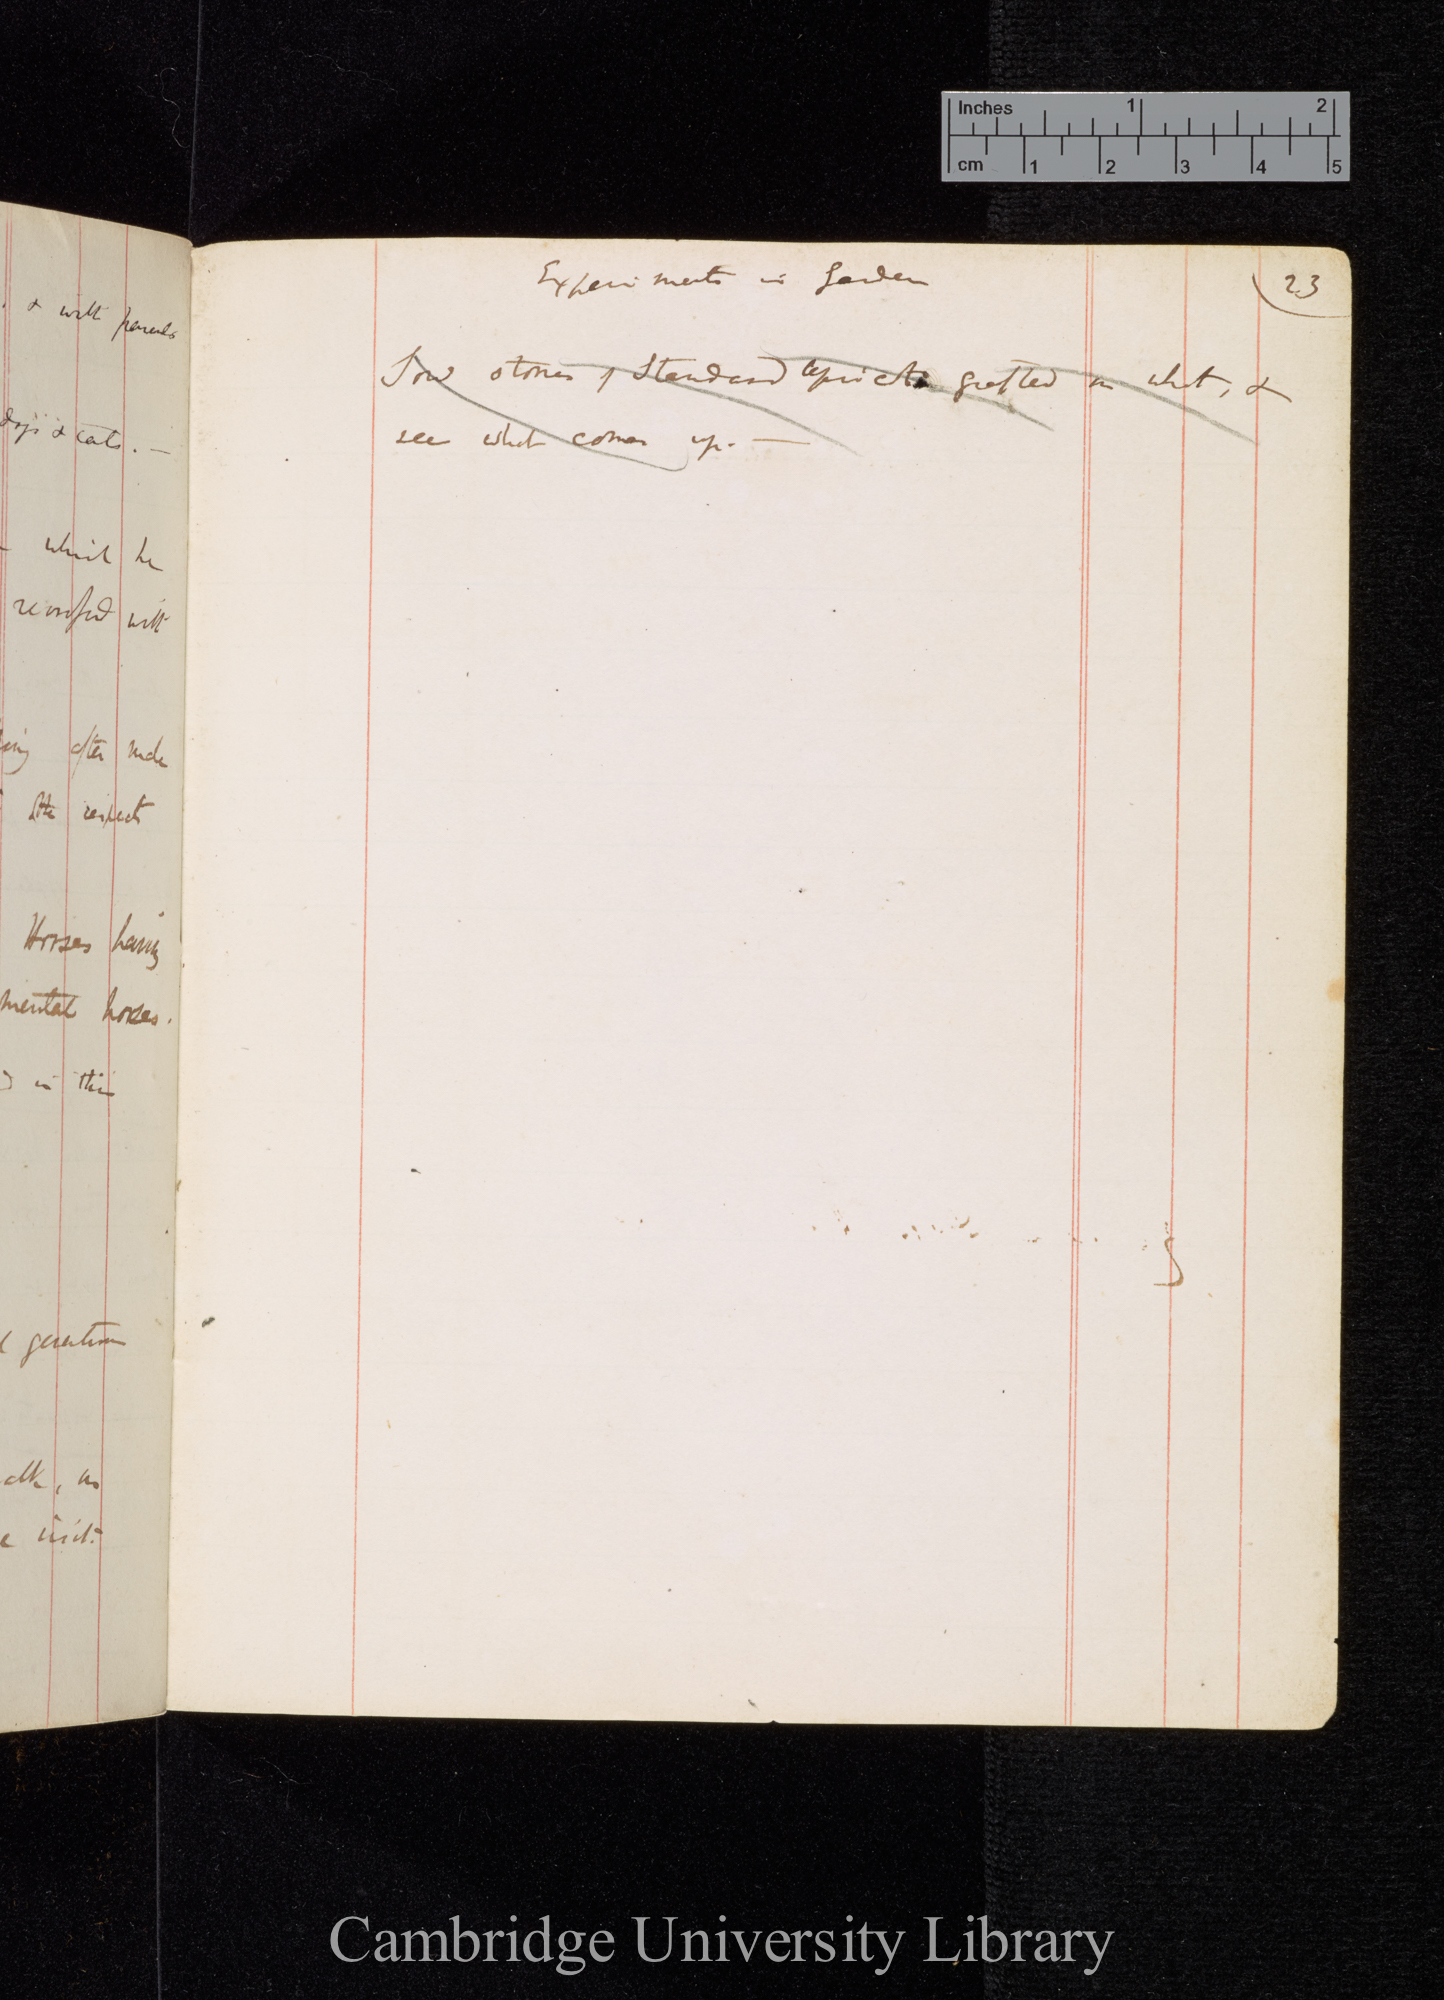 Inches 1 2
cm 1 2 3 4 5
Experiments in Garden 23
Sow stones of Standard Apricots grafted on what, &
see what comes up. —
& with
dogs & cats. —
which he
with
after made
respects
Horses having
mental horses.
in this
generation
Cambridge University Library